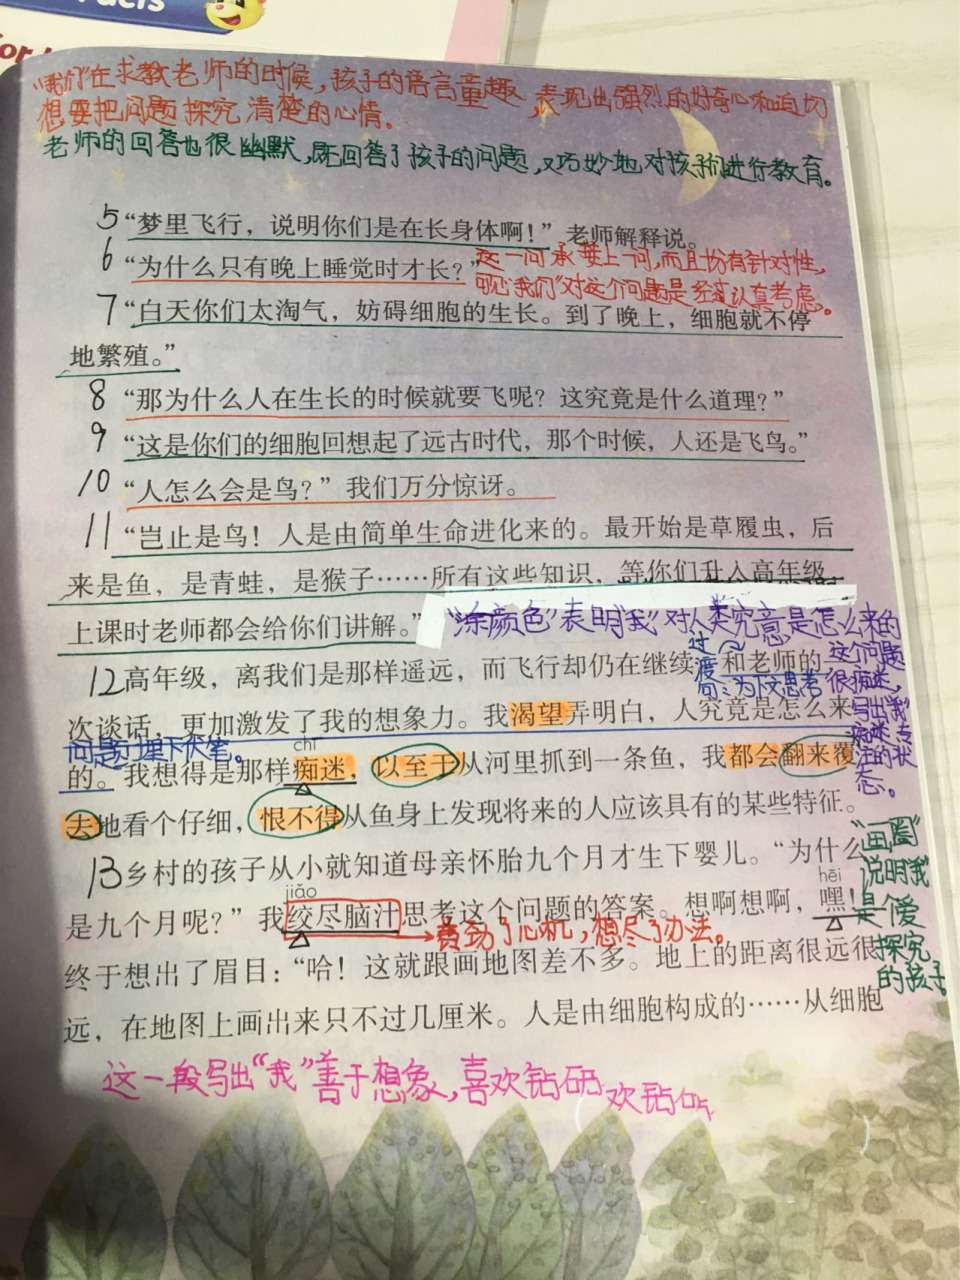 “我们”在求教老师的时候，孩子的语言童趣，表现出强烈的好奇心和迫切
想要把问题探究清楚的心情。
老师的回答也很幽默，既回答了孩子的问题，又巧妙地对孩子们进行教育。
5 “梦里飞行，说明你们是在长身体啊！”老师解释说。
6 “为什么只有晚上睡觉时才长？”
这一问承接上一问，而且均有针对性，
可见“我们”对这个问题是经过认真考虑。
7 “白天你们太淘气，妨碍细胞的生长。到了晚上，细胞就不停
地繁殖。”
8 “那为什么人在生长的时候就要飞呢？这究竟是什么道理？”
9 “这是你们的细胞回想起了远古时代，那个时候，人还是飞鸟。”
10 “人怎么会是鸟？”我们万分惊讶。
11 “岂止是鸟！人是由简单生命进化来的。最开始是草履虫，后
来是鱼，是青蛙，是猴子……所有这些知识，等你们升入高年级
上课时老师都会给你们讲解。”
“涂颜色”表明“我”对人类究竟是怎么来的
这个问题
很痴迷，
写出“我”
注的状
态。
12 高年级，离我们是那样遥远，而飞行却仍在继续
和老师的
过
渡
句：为下文思考
次谈话，更加激发了我的想象力。我渴望弄明白，人究竟是怎么来
问题埋下伏笔。
chī
的。我想得是那样痴迷，以至于从河里抓到一条鱼，我都会翻来覆
去地看个仔细，恨不得从鱼身上发现将来的人应该具有的某些特征。
13 乡村的孩子从小就知道母亲怀胎九个月才生下婴儿。“为什么
“画圈”
说明“我”
是个爱
探究
的孩子。
jiǎo
hēi
是九个月呢？”我绞尽脑汁思考这个问题的答案。想啊想啊，嘿！
费劲了心机，想尽了办法。
终于想出了眉目：“哈！这就跟画地图差不多。地上的距离很远很
远，在地图上画出来只不过几厘米。人是由细胞构成的……从细胞
这一段写出“我”善于想象，喜欢钻研
欢钻